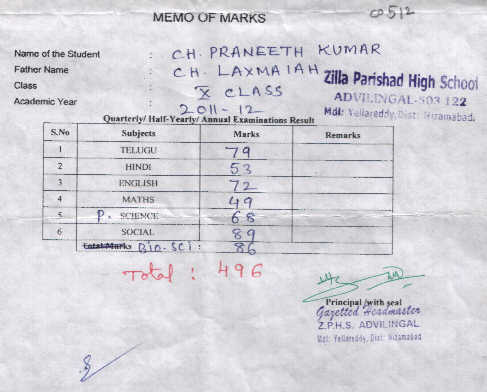 ∞512
MEMO OF MARKS
Name of the Student : CH. PRANEETH KUMAR
Father Name : CH. LAXMAIAH
Class : X CLASS
Academic Year : 2011-12
Zilla Parishad High School
ADVILINGAL-503 122
Mdl: Yellareddy, Dist: Nizamabad.
Quarterly/ Half-Yearly/ Annual Examinations Result
S.No Subjects Marks Remarks
1 TELUGU 79
2 HINDI 53
3 ENGLISH 72
4 MATHS 49
5 P. SCIENCE 68
6 SOCIAL 89
Total Marks Bio-Sci: 86
Total : 496
Principal /with seal
Gazetted Headmaster
Z.P.H.S. ADVILINGAL
Mdl: Yellareddy, Dist: Nizamabad